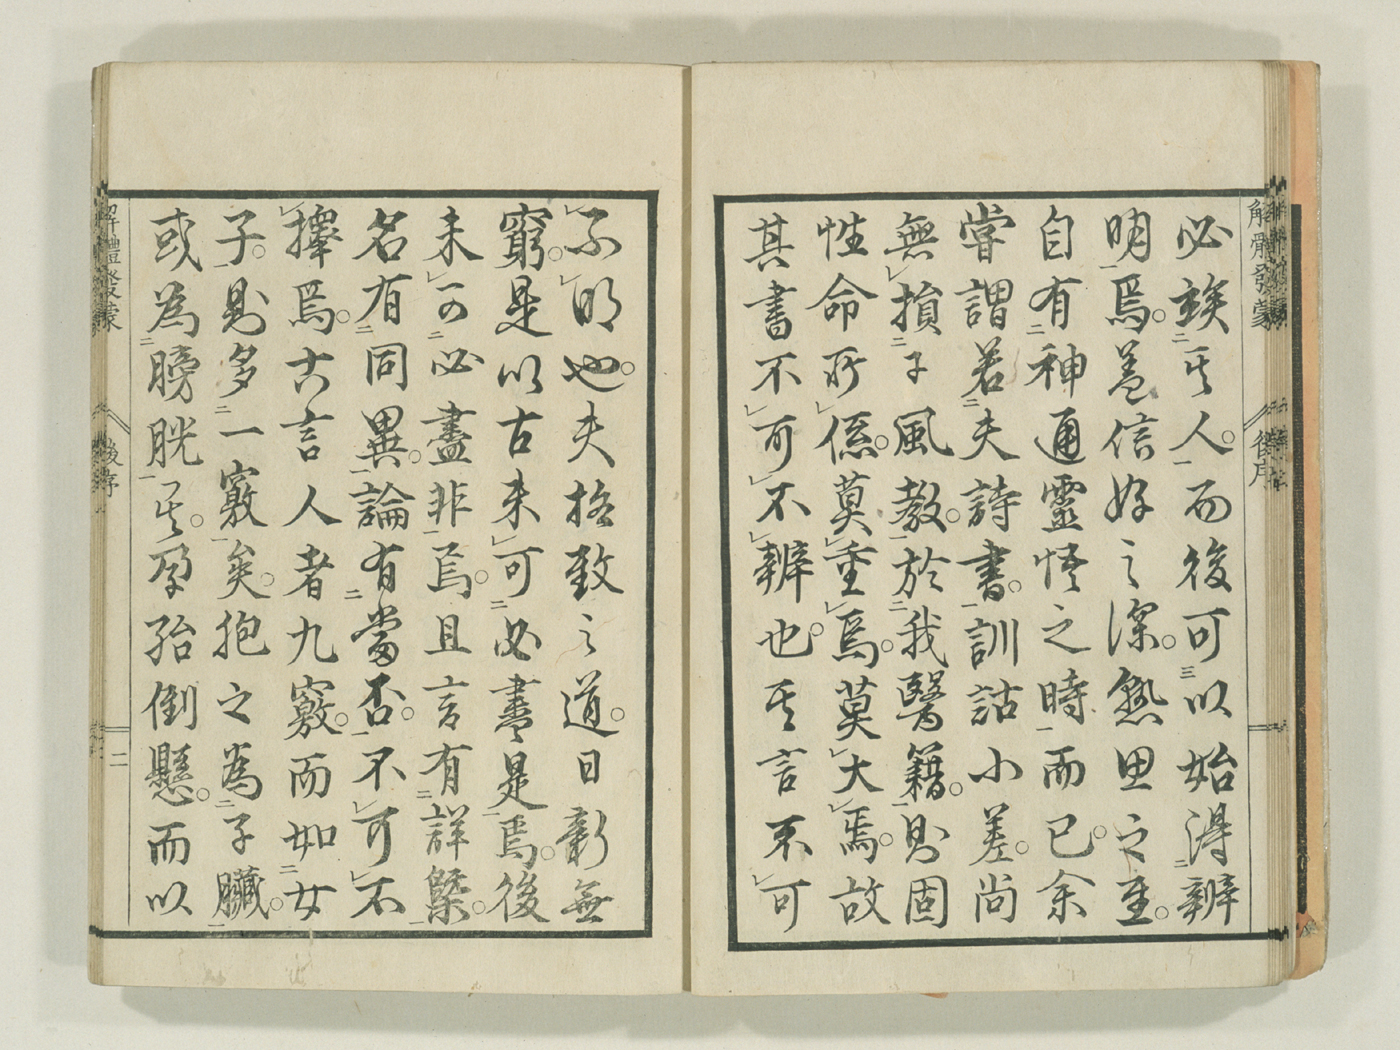 解體發蒙
後序
必竢其人而後可以始得辨
明焉蓋信好之深熟思之至
自有神通靈悟之時而已余
嘗謂若夫詩書訓詁小差尚
無損于風教於我醫籍則固
性命所係莫重焉莫大焉故
其書不可不辨也其言不可
不明也夫格致之道日新無
窮是以古未可必盡是焉後
未可必盡非焉且言有詳槩
名有同異論有當否不可不
擇焉古言人者九竅而如女
子則多一竅矣抱之為子臟
或為膀胱其孕胎倒懸而以
解體發蒙
後序
二